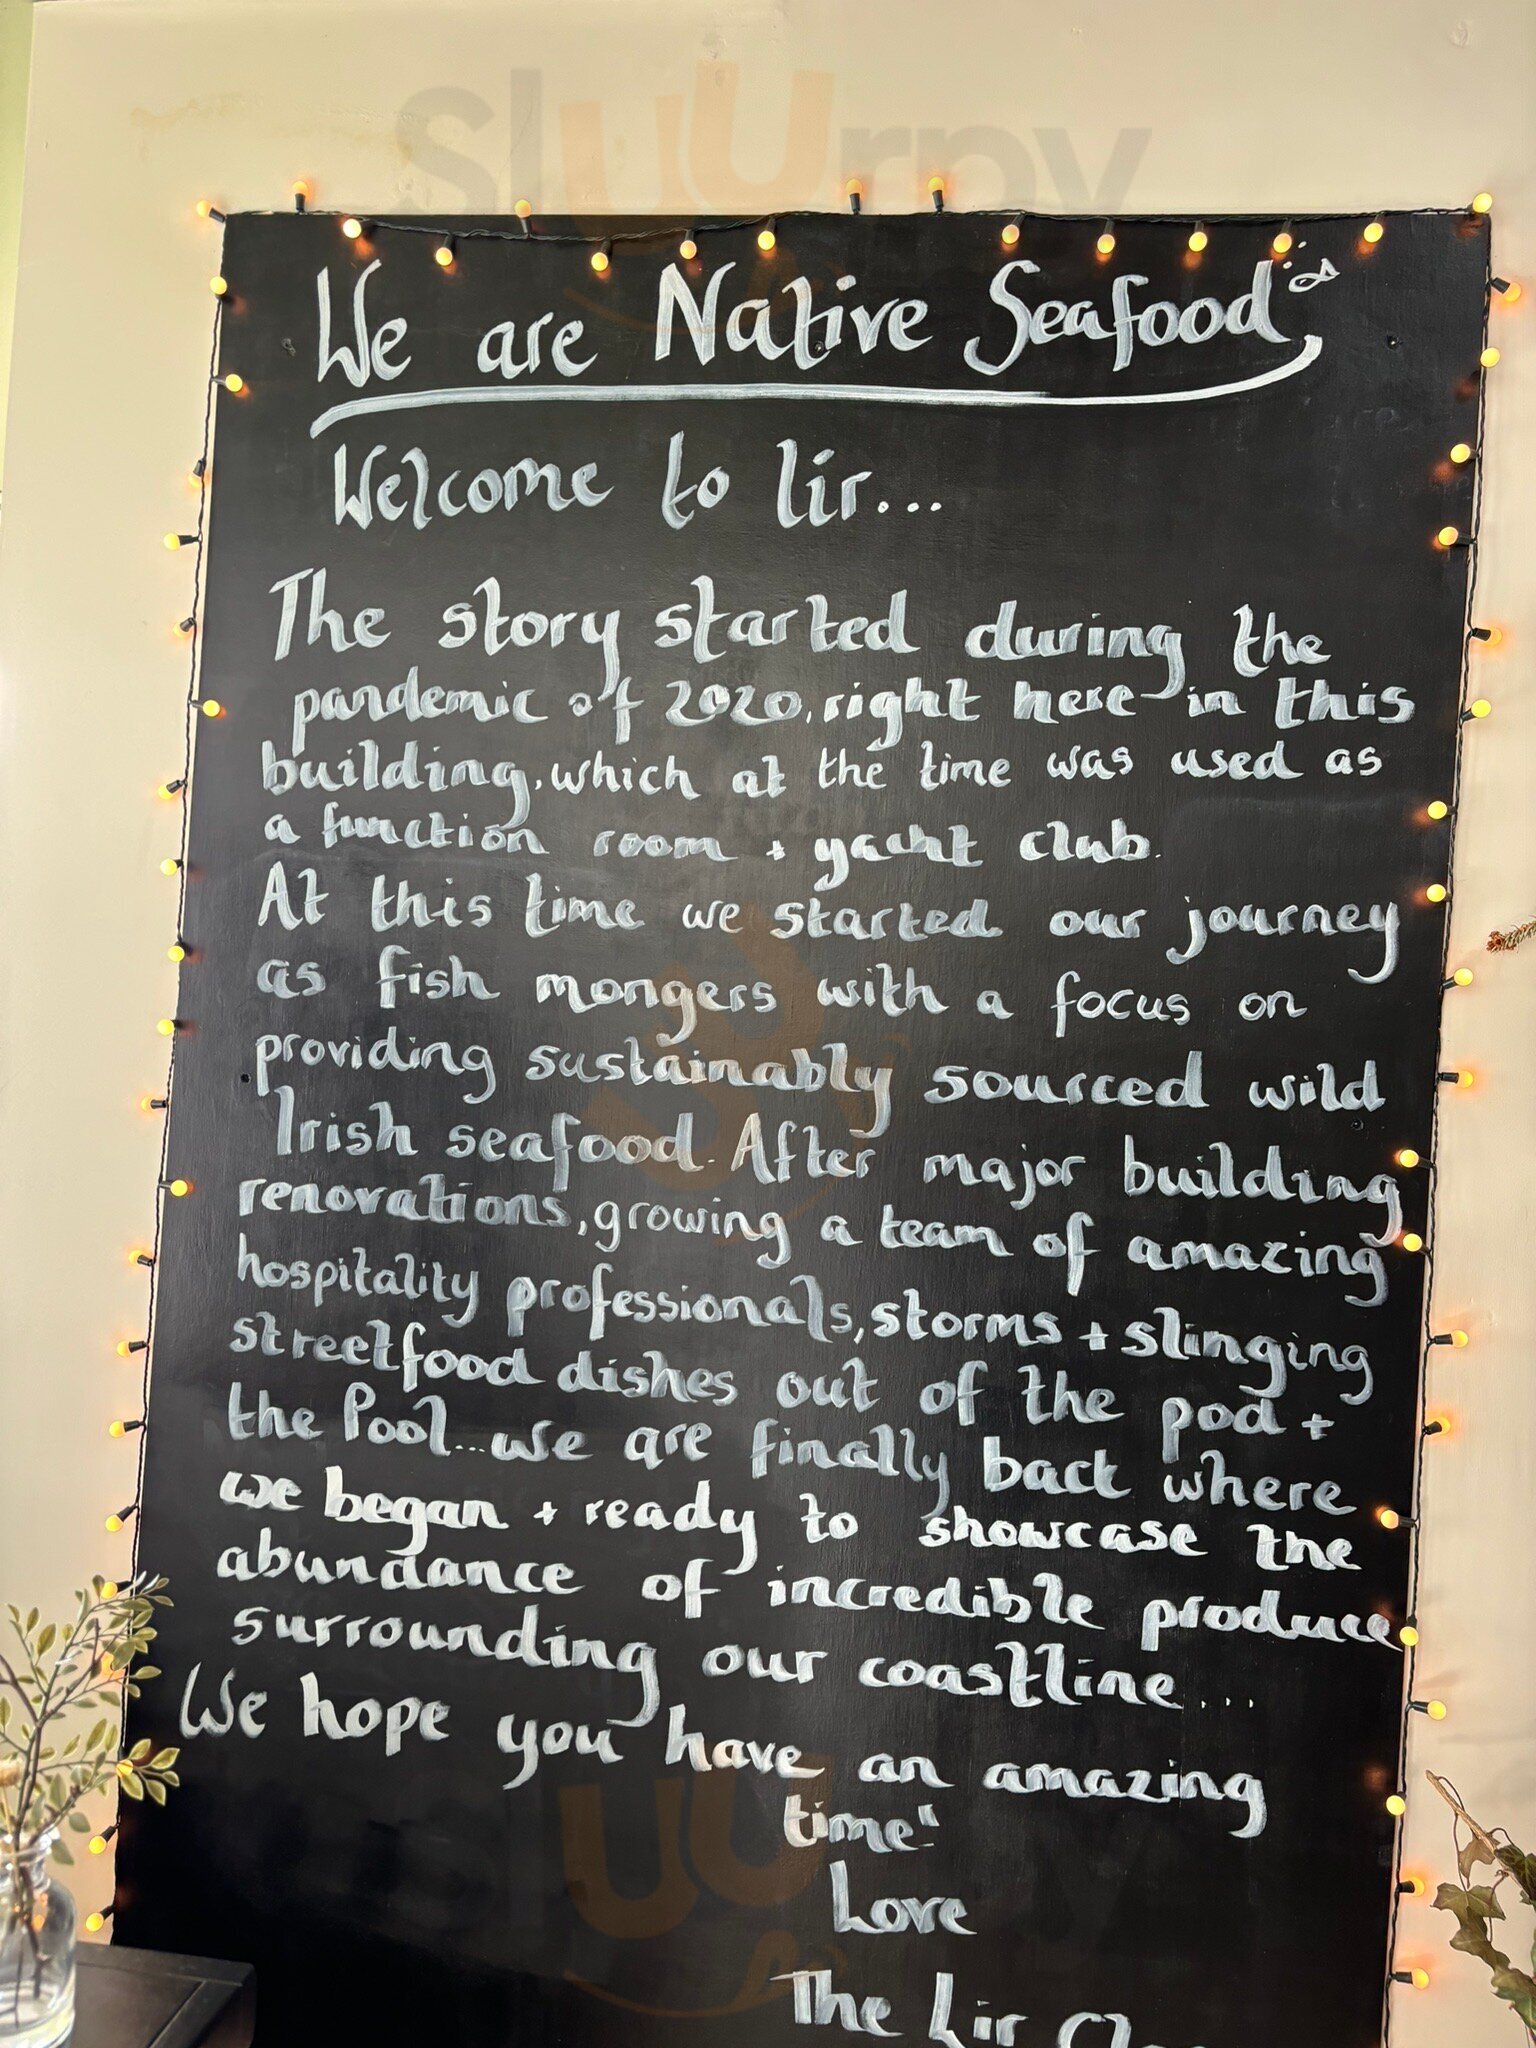 Sluurpy
We are Native Seafood
Welcome to lir...
The story started during the
pandemic of 2020, right here in this
building, which at the time was used as
a function room + yacht club.
At this time we started our journey
as fish mongers with a focus on
providing sustainably sourced wild
Irish seafood. After major building
renovations, growing a team of amazing
hospitality professionals, storms + slinging
streetfood dishes out of the pod +
the Pool... we are finally back where
we began + ready to showcase the
abundance of incredible produce
surrounding our coastline...
We hope you have an amazing
time!
Love
The Lir